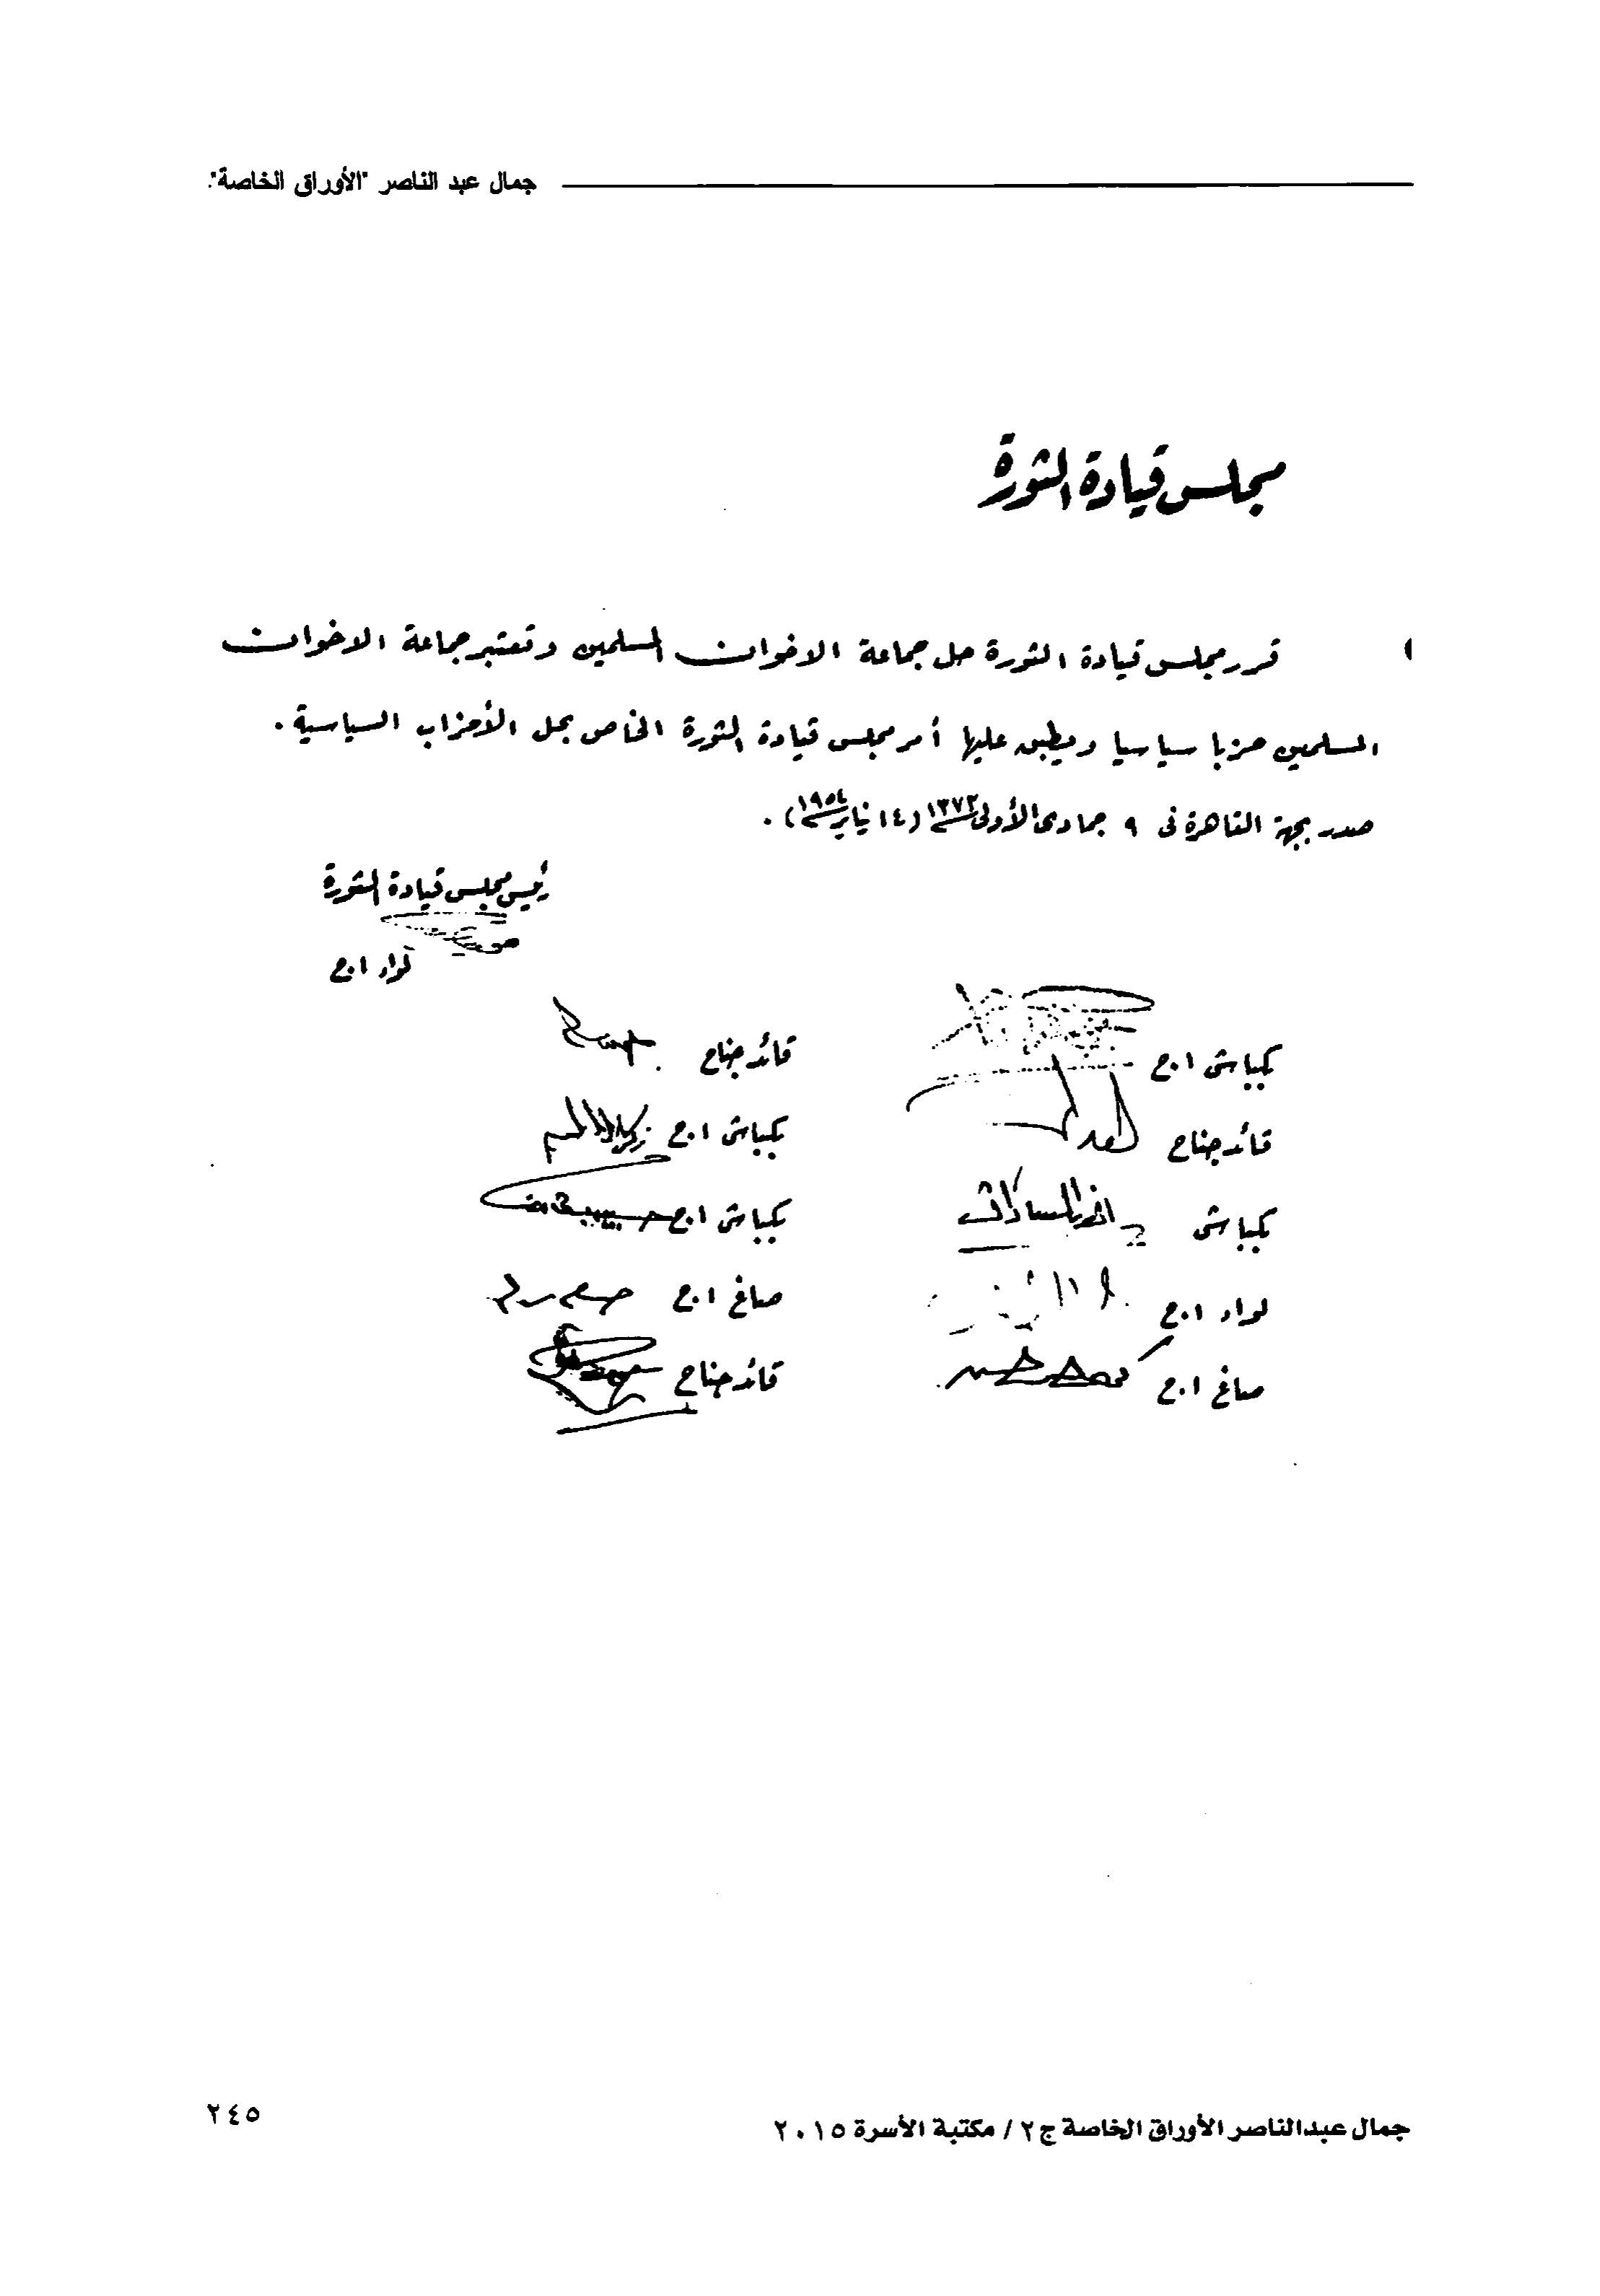 جمال عبد الناصر "الأوراق الخاصة".
مجلس قيادة الثورة
قرر مجلس قيادة الثورة حل جماعة الاخوان المسلمين وتعتبر جماعة الاخوان
المسلمين حزبا سياسيا ويطبق عليها أمر مجلس قيادة الثورة الخاص بحل الأحزاب السياسية .
صدر بجهة القاهرة فى ٩ جمادى الأولى ١٣٧٣ (١٤ يناير ١٩٥٤) .
رئيس مجلس قيادة الثورة
لواء ا.ح
بكباشى ا.ح
قائد جناح
قائد جناح
بكباشى ا.ح زكريا
بكباشى أنور السادات
بكباشى ا.ح
لواء ا.ح
صاغ ا.ح
صاغ ا.ح
قائد جناح
جمال عبدالناصر الأوراق الخاصة ج٢ / مكتبة الأسرة ٢٠١٥
٢٤٥